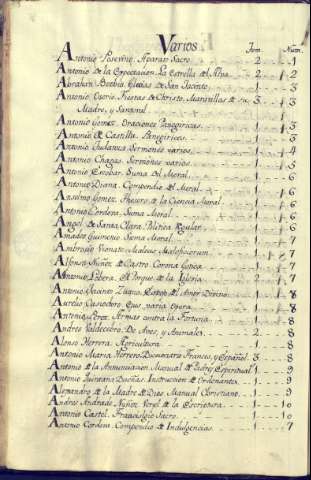 Varios
Tom. Num.
Antonio Posevino. Aparato Sacro 2 1
Antonio de la Expectacion. La Estrella del Alva 2 2
Abrahan Bzobio. de San Jacinto 1 3
Antonio Osorio. Fiestas de Christo, Maravillas de su 3 3
Madre, y Santoral
Antonio Gomez. Oraciones Panegiricas 1 3
Antonio de Castilla. Panegiricos 1 3
Antonio Sermones varios 1 4
Antonio Chagas. Sermones varios 1 5
Antonio Escobar. Suma del Moral 1 6
Antonio Diana. Compendio del Moral 1 6
Anselmo Gomez. Thesoro de la Ciencia Moral 1 6
Antonio Cordova. Suma Moral 1 6
Angel de Santa Clara. Politica Regular 1 6
Amadeo Guimenio. Suma Moral 1 7
Ambrosio Vignato. Maleficiorum 1 7
Alfonso Nuñez de Castro. Corona Gotica 1 7
Antonio Lobera. El Porque de la Iglesia 1 7
Antonio Jacinto del Amor Divino 1 8
Aurelio Casiodoro. varia Opera 1 8
Antonio Armas contra la Fortuna 1 8
Andres Valdecebro. De Aves, y Animales 2 8
Alonso Herrera. Agricultura 1 8
Antonio Maria Herrero. Diccionario Frances, y Español 3 8
Antonio de la Annunciacion. Manual de Padres Espirituales 1 9
Antonio Quintana Dueñas. Instruccion de Ordenantes 1 9
Alexandro de la Madre de Dios. Manual Christiano 1 9
Andres Andrade Nuñez. Verjel de la Escritura 1 10
Antonio Castel. Sacro 1 10
Antonio Cordova. Compendio de Indulgencias 1 7